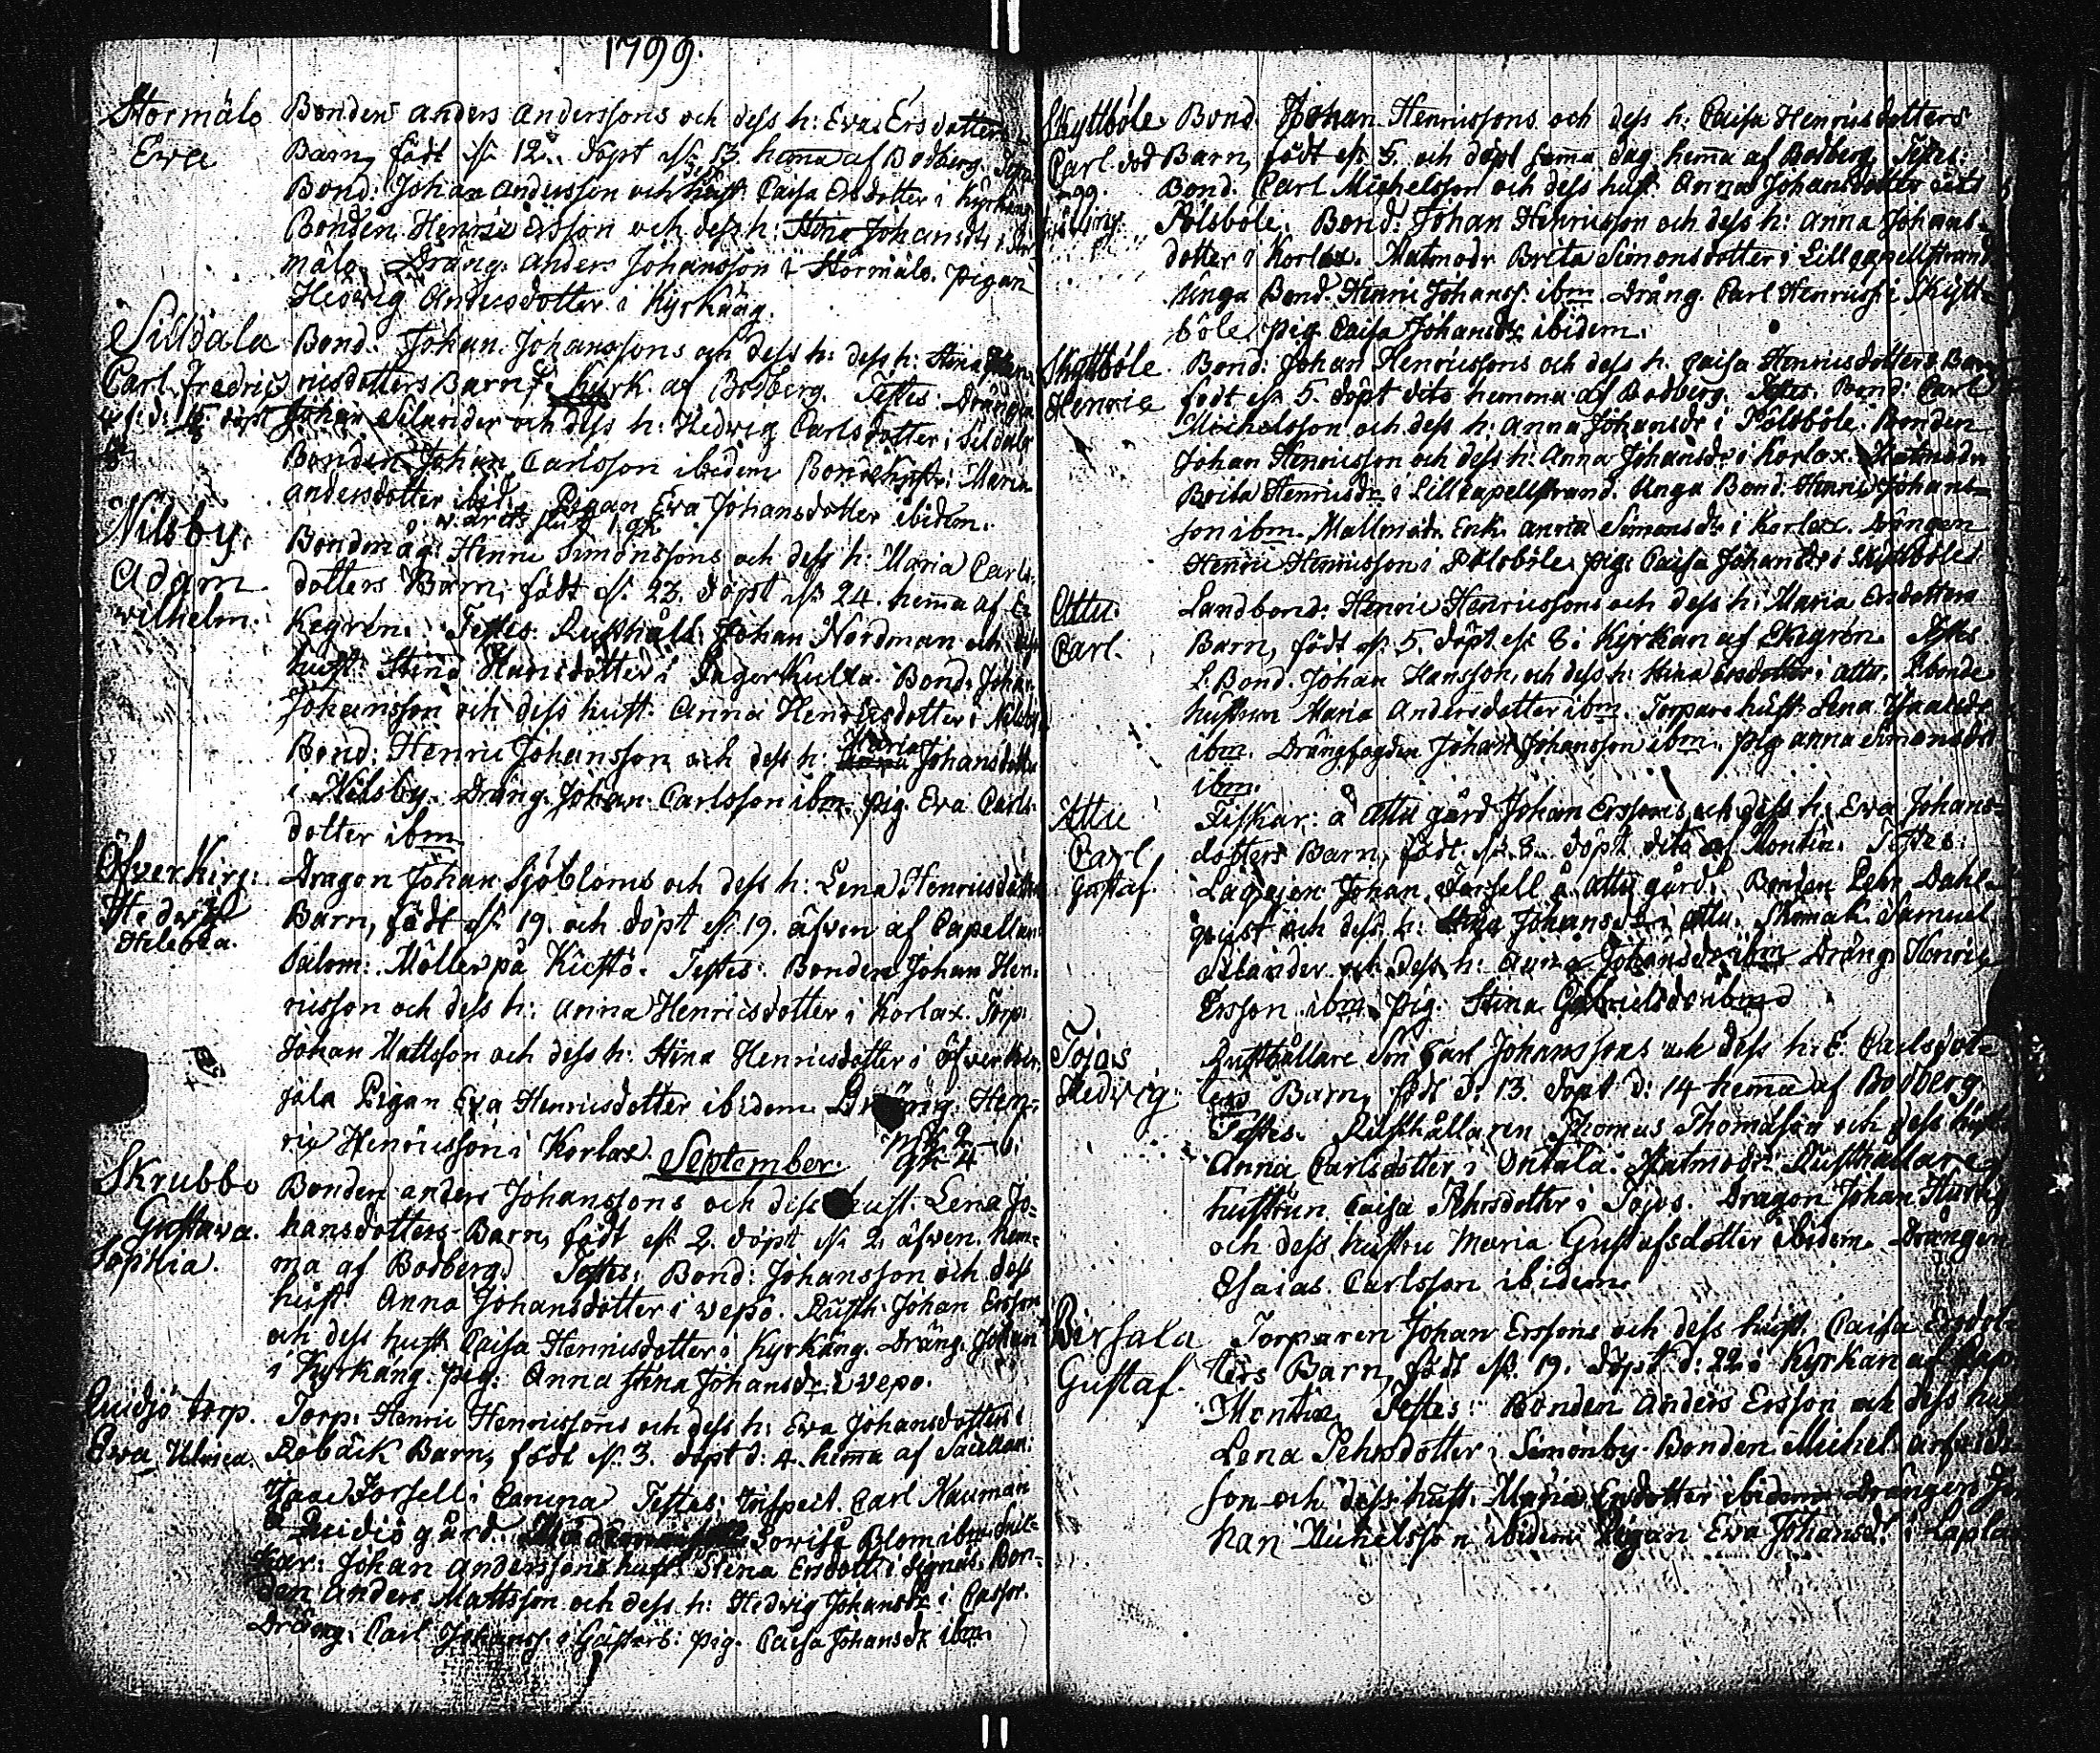 1799.
Stormälo Bonden Anders Anderssons och dess h: Eva Ersdotters
Eva Barn, födt d: 12. döpt d: 13. hemma af Bodberg.
Bond: Johan Andersson och hust: Caisa Ersdotter i Kyrkäng
Bonden Henric Ersson och dess h: Stina Johansdr i Stor
mälo. Dräng: Anders Johansson i Stormälo. pigan
Hedvig Andersdotter i Kyrkäng.
Sildala Bond: Johan Johanssons och dess h: dess h: Stina Hen
Carl Fredric ricsdotters Barn, i kyrk. af Bodberg. Testes. Drängen
döpt Johan Selander och dess h: Hedvig Carlsdotter i Sildala
Bonden Johan Carlsson ibidem Bondehustr: Maria
Andersdotter ibid. Pigan Eva Johansdotter ibidem.
Nilsby. Bondmåg: Henric Simonssons och dess h: Maria Carls
Adam dotters Barn, födt d: 23. döpt d: 24. hemma af E
Wilhelm. kegrén. Testes. Rusthåll: Johan Nordman och dess
hust: Stina Hansdotter i Ingerkulla. Bond: Johan
Johansson och dess hust: Anna Henricsdotter i Nilsby
Bond: Henric Johansson och dess h: Maria Johansdotter
i Nilsby. Dräng. Johan Carlsson ibm. pig: Eva Carls
dotter ibm.
Öfverkirj: Dragon Johan Sjöbloms och dess h: Lena Henricsdotters
Hedvig Barn, födt d: 19. och döpt d: 19. äfven af Capellan
Helena. Salom: Möller på Kustö. Testes: Bonden Johan Hen:
ricsson och dess h: Anna Henricsdotter i Korlax. Torp:
Johan Mattsson och dess h: Stina Henricsdotter i Öfverkir
jala Pigan Eva Henricsdotter ibidem Dräng: Hen:
ric Henricsson i Korlax. September.
Skrubbo Bonden Anders Johanssons och dess hust: Lena Jo=
Gustava hansdotters Barn, födt d: 2. döpt d: 2. äfven. hem=
Sophia. ma af Bodberg. Testes. Bond: Johansson och dess
hust: Anna Johansdotter i Vepo. Rusth: Johan Ersson
och dess hust: Caisa Henricsdotter i Kyrkäng. Dräng. Johan
i Kyrkäng. pig: Anna Stina Johansdr i Vepo.
Quidjö torp. Torp: Henric Henricssons och dess h: Eva Johansdotters
Eva Ulrica. Robäck Barn, födt d: 3. döpt d: 4. hemma af Sacellan:
Isaac Forsell i Caruna Testes: Inspect. Carl Nauman
å Quidjö gård. Lovisa Blom ibm.
kar: Johan Anderssons hust: Stina Ersdott: i Signäs. Bon=
den Anders Mattsson och dess h: Hedvig Johansdr i Cassor.
Dräng: Carl Johanss. i Gästerb: pig. Caisa Johansdr ibm.
Skyttböle Bond Johan Henricssons och dess h: Caisa Henricsdotters
Carl. död Barn, födt d: 5. och döpt samma dag hemma af Bodberg. Testes:
Bond. Carl Michelsson och dess hust: Anna Johansdotter
Pölsböle. Bond: Johan Henricsson och dess h: Anna Johans=
dotter i Korlax. Matmodr Brita Simonsdotter i Lillcapellstrand
Unga Bond. Henric Johanss: ibm. Dräng. Carl Henricss: i Skytt=
böle, pig. Caisa Johansdr ibidem.
Skyttböle Bond: Johan Henricssons och dess h. Caisa Henricsdotters Barn
Henric födt d: 5. döpt dito hemma af Bodberg. Testes. Bond: Carl
Michelsson och dess h: Anna Johansdr i Pölsböle. Bonden
Johan Henricsson och dess h: Anna Johansdr i Korlax. Matmodr
Brita Henricsdr i Lillcapellstrand. Unga Bond: Henric Johans=
son ibm. Matmodr. Enk: Anna Simonsdr i Korlax. Drängen
Henric Henricsson i Pölsböle. pig: Caisa Johansdr i Skyttböle
Attu. Landbond: Henric Henricssons och dess h: Maria Ersdotters
Carl. Barn, födt d: 5. döpt d: 8. i Kyrkan af Ekegrén. Testes
L. Bond. Johan Hansson, och dess h: Stina Ersdotter i Attu. Lbonde
hustrun Maria Andersdotter ibm. Torpare hust: Lena
ibm. Drängfogden Johan Johansson ibm. pig Anna Simonsdr
ibm.
Attu Fiskar: å Attu gård Johan Erssons och dess h: Eva Johans=
Carl dotters Barn, födt d: 8. döpt dito af Montin. Testes:
Gustaf. Laqvejen Johan Forsell å Attu gård. Bonden Pehr Dahl=
qvist och dess h: Stina Johansdr i Attu. Skomak. Samuel
Selander och dess h: Anna Johansdr ibm Dräng Henric
Ersson ibm pig: Stina Gabrielsdr ibm
Tojas Rusthållare Son Carl Johanssons och dess h: E. Carlsdot=
Hedvig ters Barn, födt d: 13. döpt d: 14 hemma af Bodberg.
Testes. Rusthållaren Thomas Thomasson och dess hust:
Anna Carlsdotter i Vntala. Matmodr: Rusthållare
hustrun Caisa Pehrsdotter i Tojos. Dragon Johan Sturk
och dess hustru Maria Gustafsdotter ibidem. Drängen
Esaias Carlsson ibidem.
Birsala Torparen Johan Erssons och dess hust: Caisa Ersdot=
Gustaf. ters Barn, födt d: 19. döpt d: 22. i Kyrkan af Cap
Montin. Testes: Bonden Anders Ersson och dess hus
Lena Pehrsdotter i Simonby. Bonden Michel
son och dess hust: Maria Ersdotter ibidem Drängen Jo
han Michelsson ibidem Pigan Eva Johansdr i Lapla